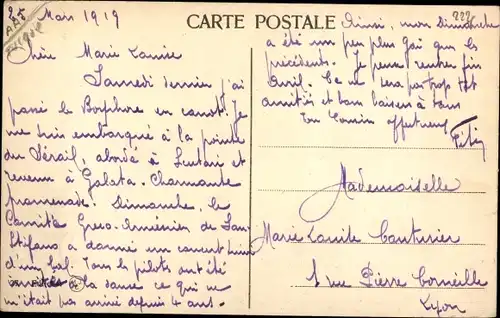 25 Mars 1919
CARTE POSTALE
Chère Marie Louise
Samedi dernier j'ai
passé le Bosphore en canot. Je
me suis embarqué à la pointe
du Sérail, abordé à Scutari et
revenu à Galata. Charmante
promenade. Dimanche, le
Comité Greco-Arménien de San
Stefano a donné un concert suivi
d'un bal. Tous les pilotes ont été
invités à la danse ce qui ne
m'était pas arrivé depuis 4 ans.
Ainsi, mon dimanche
a été un peu plus gai que les
précédents. Je pense rentrer fin
Avril. Ce ne sera pas trop tôt
amitiés et bons baisers à tous
Ton Cousin affectueux
Mademoiselle
Marie Louise Couturier
1 rue Pierre Corneille
Lyon